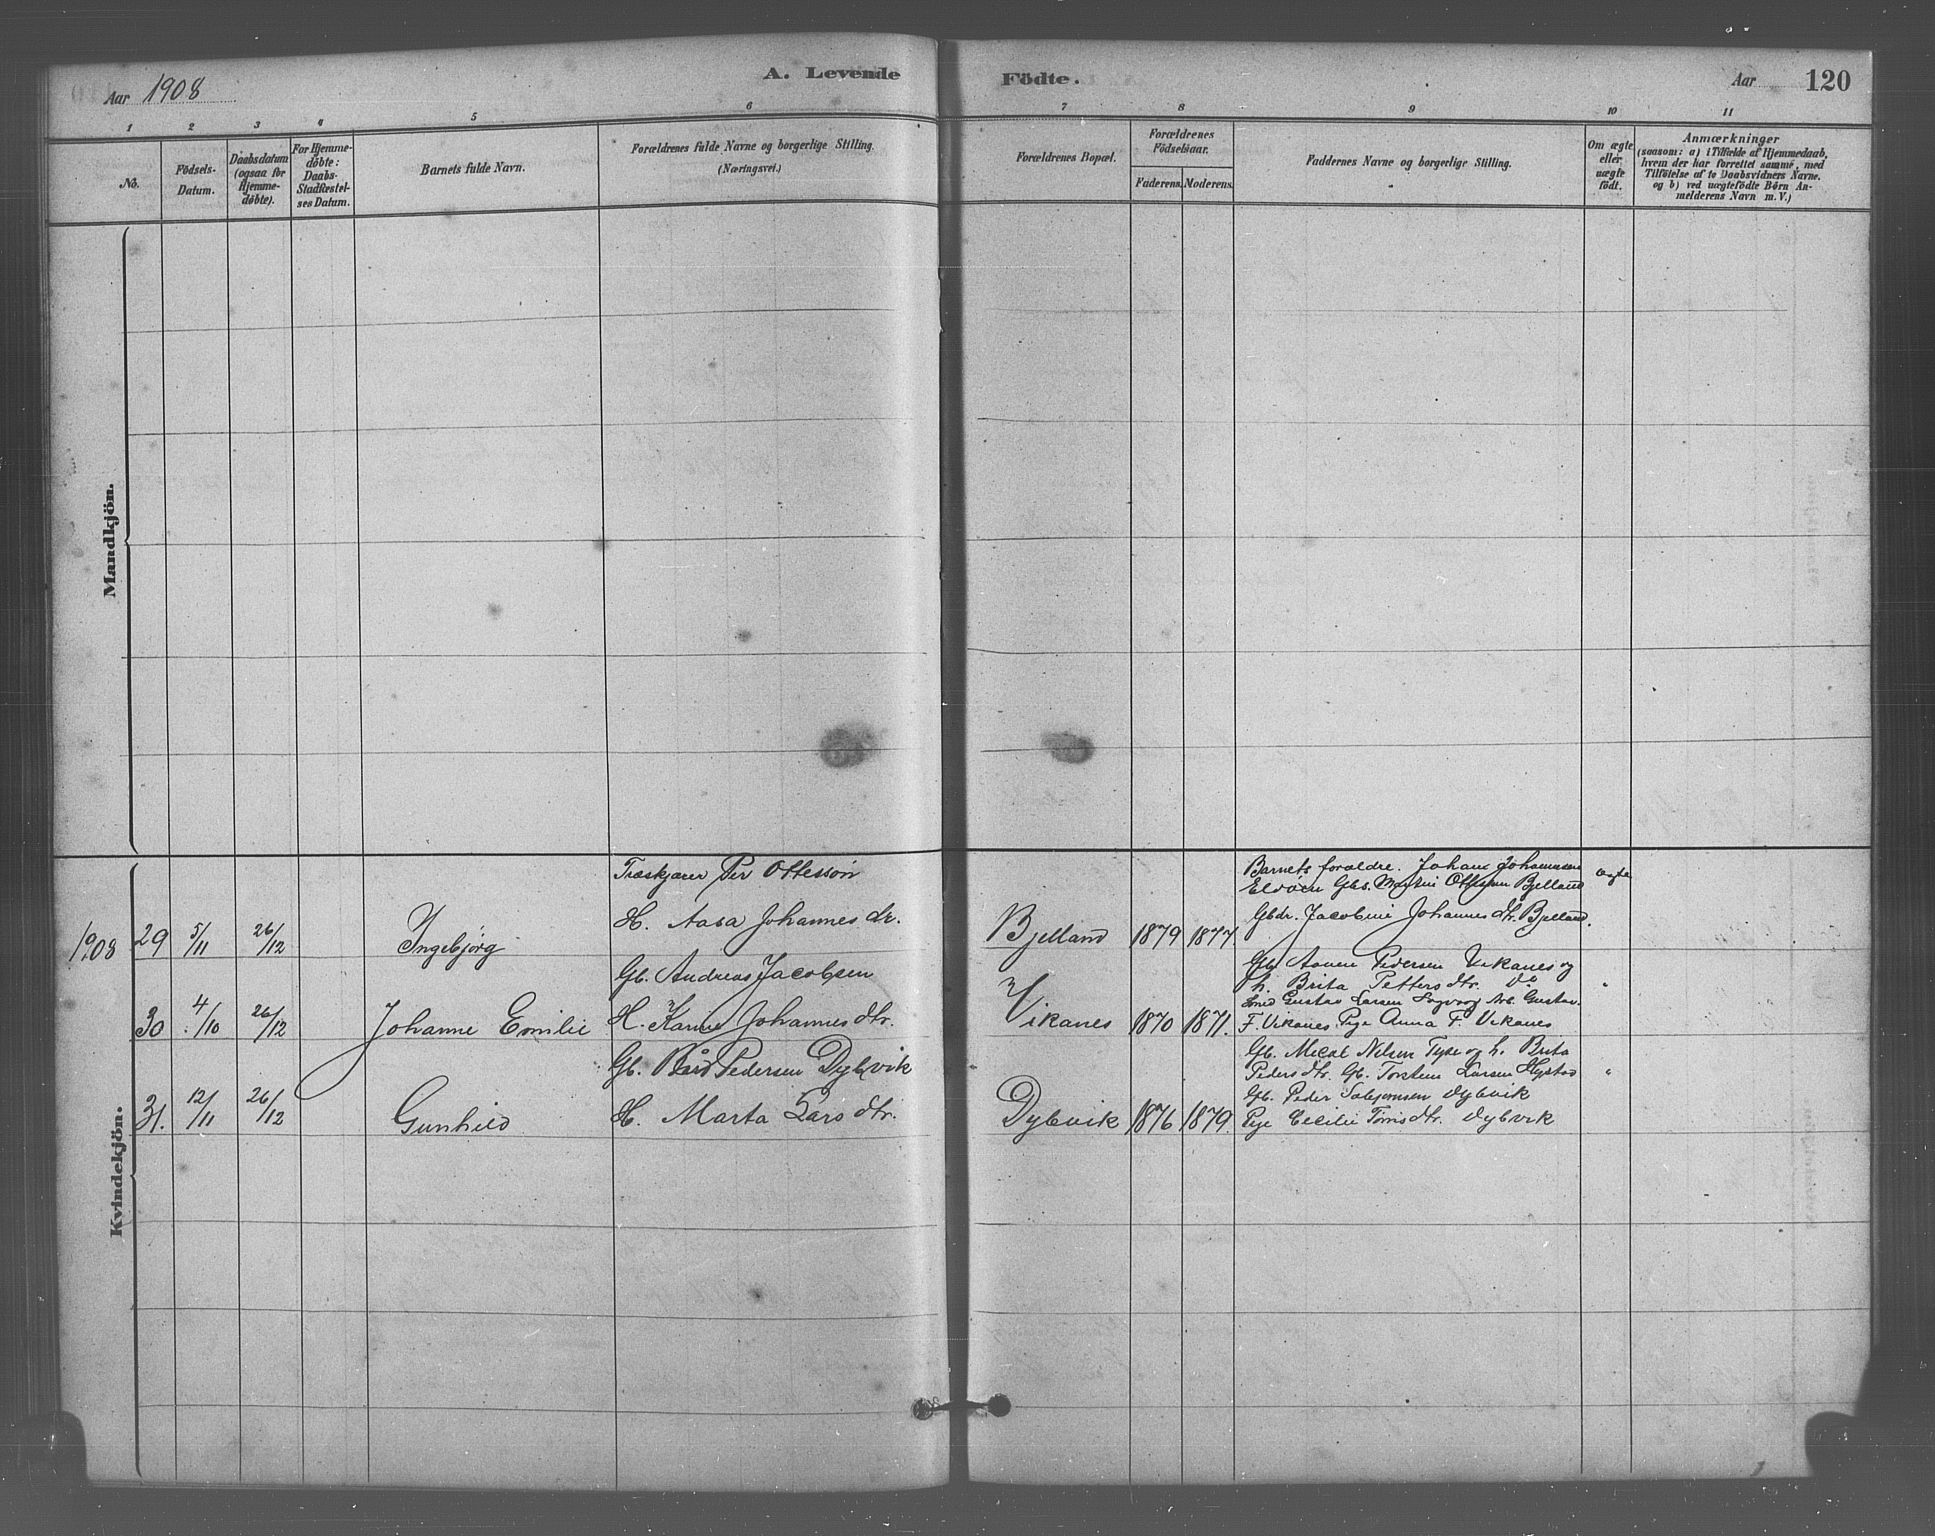 Aar 1908
A. Levende
Födte.
Aar 120
1 2 3 4 5 6 7 8 9 10 11
No.
Födsels-
Datum.
Daabsdatum
(ogsaa for
Hjemme-
døbte).
For Hjemme-
døbte:
Daabs-
Stadfæstel-
ses Datum.
Barnets fulde Navn.
Forældrenes fulde Navne og borgerlige Stilling.
(Næringsvei.)
Forældrenes Bopæl.
Forældrenes
Födselsaar.
Faderens. Moderens.
Faddernes Navne og borgerlige Stilling.
Om ægte
eller
uægte
født.
Anmærkninger
(saasom: a) i Tilfælde af Hjemmedaab,
hvem der har forrettet samme, med
Tilföielse af to Daabsvidners Navne.
og b) ved uægtefödte Börn An-
melderens Navn m. V.)
Mandkjön.
Kvindekjön.
1908
29 5/11 26/12 Ingebjørg
Træskjærer Per Ottesson
H. Aasa Johannesdr.
Bjelland 1879 1877
Barnets foraeldre. Johans Johannesen
Eldöen Gbs. Martin Ottesen Bjelland
Gbdr. Jacobine Johannesdtr. Bjelland.
ægte
30 4/10 26/12 Johanne Emilie
Gb. Andreas Jacobsen
H. Karine Johannesdtr.
Vikanes 1870 1871.
Gb. Aamen Pedersen Vikanes og
h. Brita Pettersdtr. do
Smed Gustav Larsen Arb. Gustav
F. Vikanes Pige Anna F. Vikanes
"
31. 12/11 26/12 Gunhild
Gb. Bård Pedersen Dybvik
H. Marta Larsdtr.
Dybvik 1876 1879.
Gb. Mecal Nilsen Tyse og h. Brita
Pedersdtr. Gb. Torstein Larsen Hystad
Gb. Peder Salejornsen Dybvik
Pige Cecilie Tomisdtr. Dybvik
"